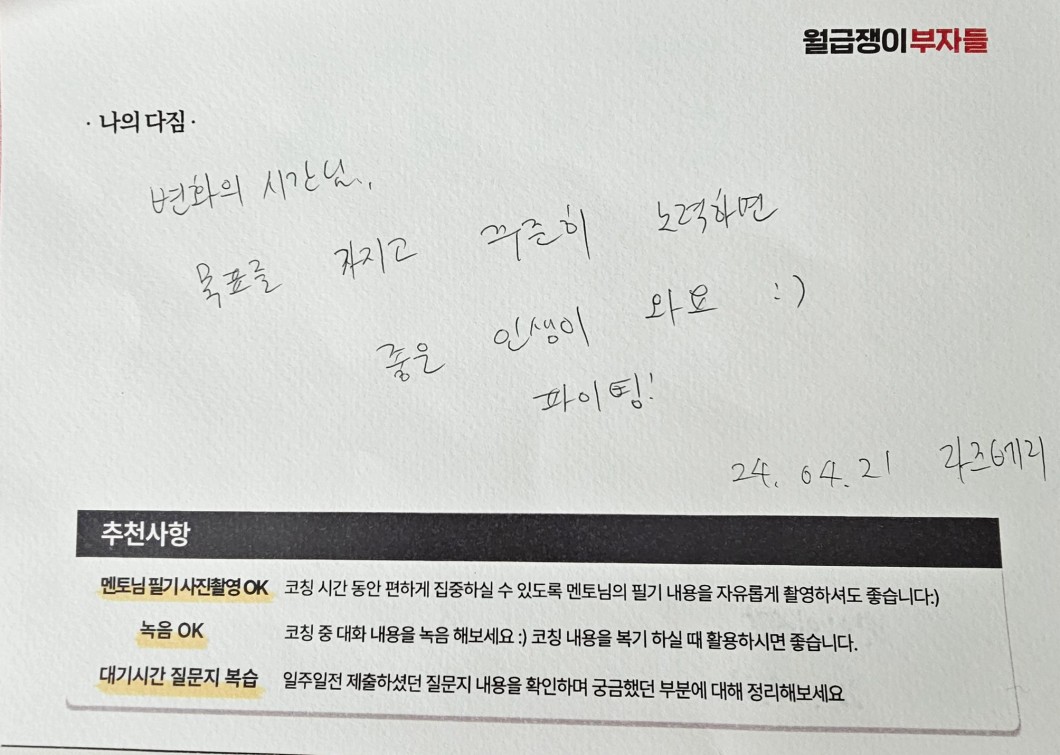 월급쟁이부자들
· 나의 다짐 ·
변화의 시간님,
목표를 가지고 꾸준히 노력하면
좋은 인생이 와요 :)
파이팅!
24. 04. 21 라즈베리
추천사항
멘토님 필기 사진촬영 OK 코칭 시간 동안 편하게 집중하실 수 있도록 멘토님의 필기 내용을 자유롭게 촬영하셔도 좋습니다:)
녹음 OK 코칭 중 대화 내용을 녹음 해보세요 :) 코칭 내용을 복기 하실 때 활용하시면 좋습니다.
대기시간 질문지 복습 일주일전 제출하셨던 질문지 내용을 확인하며 궁금했던 부분에 대해 정리해보세요